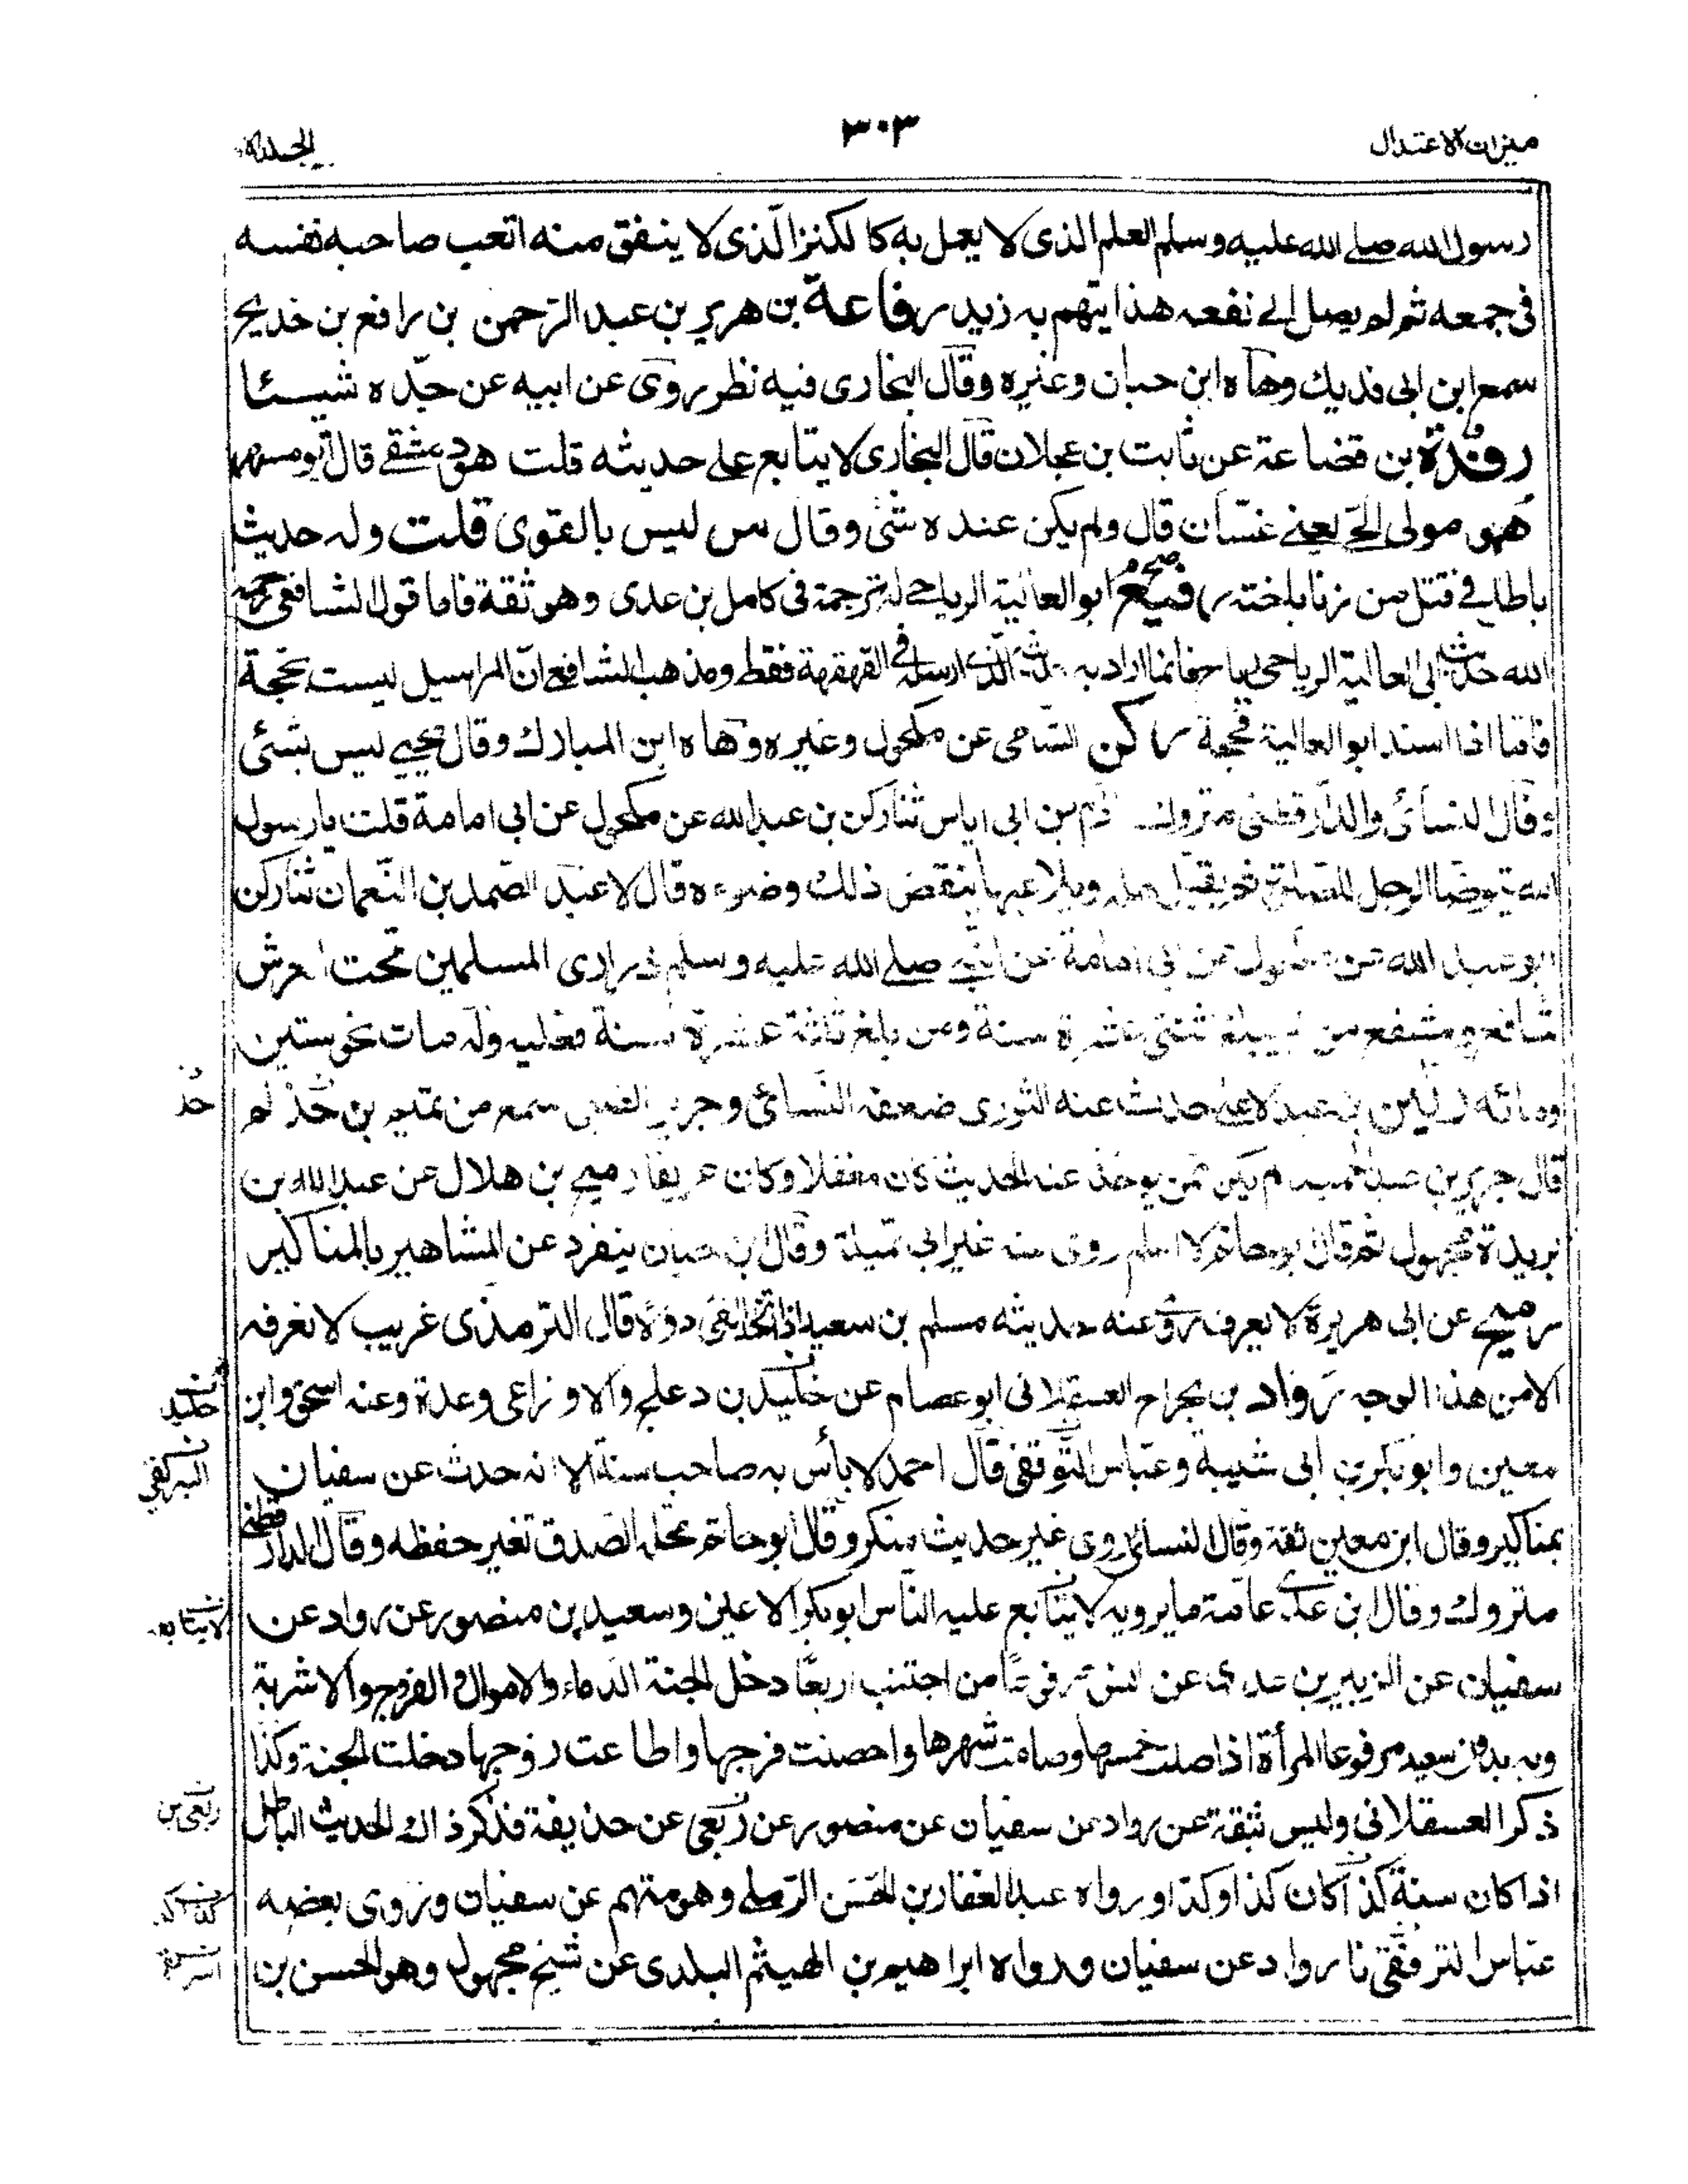 ميزان الاعتدال
٣٠٣
رسول الله صلى الله عليه وسلم العلم الذى لا يعمل به كالكنز الذى لا ينفق منه اتعب صاحبه نفسه
فى جمعه ثم لم يصل الى نفعه هذا يتهم به زيد رفاعة بن هرير بن عبد الرحمن بن رافع بن خديج
سمع ابن ابى فديك وهاه ابن حبان وغيره وقال البخارى فيه نظر روى عن ابيه عن جده شيئا
رفدة بن قضاعة عن ثابت بن عجلان قال البخارى لا يتابع على حديثه قلت هو دمشقى قال ابو مسهر
هو مولى الحى يعنى غسان قال ولم يكن عنده شئ وقال س ليس بالقوى قلت وله حديث
باطل فى قتل من زنا باخته رفيع ابو العالية الرياحى له ترجمة فى كامل بن عدى وهو ثقة فاما قول الشافعى رحمه
الله حديث ابى العالية الرياحى رياح فانما اراد به الذى ارسله فى القهقهة فقط ومذهب الشافعى ان المراسيل ليست بحجة
فاما اذا اسند ابو العالية فحجة ركن الشامى عن مكحول وغيره وهاه ابن المبارك وقال يحيى ليس بشئى
وقال النسائى والدارقطنى متروك آدم بن ابى اياس ثنا ركن بن عبد الله عن مكحول عن ابى امامة قلت يا رسول
الله يتوضا الرجل للصلوة ثم يقبل اهله ويلاعبها ينقض ذلك وضوءه قال لا عبد الصمد بن النعمان ثنا ركن
ابو عبد الله عن مكحول عن ابى امامة عن النبى صلى الله عليه وسلم ذرارى المسلمين تحت العرش
شافع ومشفع من لم يبلغ ثنتى عشرة سنة ومن بلغ ثلثة عشرة سنة فعليه وله مات نحو ستين
ومائه ركين بن عبد الاعلى حدث عنه الثورى ضعفه النسائى وجرير الضبى سمع من تميم بن حذلم
حذ
قال جرير بن عبد الحميد لم يكن ممن يوخذ عنه الحديث كان مغفلا وكان عريفا رميح بن هلال عن عبد الله بن
بريدة مجهول ثم قال ابو حاتم لا اعلم روى عنه غير ابى تميلة وقال ابن حبان ينفرد عن المشاهير بالمناكير
رميح عن ابى هريرة لا يعرف روى عنه حديثه مسلم بن سعيد اذا اتخذ الفئ دولا قال الترمذى غريب لا نعرفه
الا من هذا الوجه رواد بن الجراح العسقلانى ابو عصام عن خليد بن دعلج والاوزاعى وعدة وعنه اسحق وابن
خليد
معين وابو بكر بن ابى شيبة وعباس الترقفى قال احمد لا بأس به صاحب سنة الا انه حدث عن سفيان
بمناكير وقال ابن معين ثقة وقال النسائى روى غير حديث منكر وقال ابو حاتم محله الصدق تغير حفظه وقال الدارقطنى
متروك وقال ابن عدى عامة ما يرويه لا يتابع عليه الناس ابو بكر الاعين وسعيد بن منصور عن رواد عن
سفيان عن الزبير بن عدى عن انس مرفوعا من اجتنب اربعا دخل الجنة الدماء والاموال والفروج والاشربة
وبه بدون سعيد مرفوعا المرأة اذا صلت خمسها وصامت شهرها واحصنت فرجها واطاعت زوجها دخلت الجنة وكذا
ذكر العسقلانى وليس بثقة عن رواد عن سفيان عن منصور عن ربعى عن حذيفة فذكر ذاك الحديث الباطل
ربعى بن
اذا كان سنة كذا كان كذا وكذا ورواه عبد الغفار بن الحسن الرملى وهو متهم عن سفيان وروى بعضه
عباس الترقفى نا رواد عن سفيان ورواه ابراهيم بن الهيثم البلدى عن شيخ مجهول وهو الحسن بن